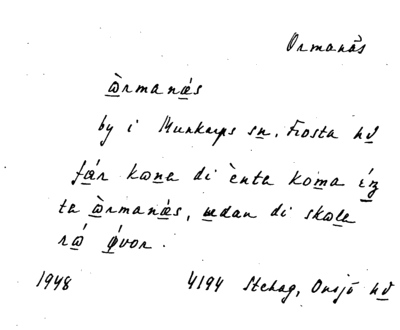 Ormanäs
ɷ̀rmanǽs
by i Munkarps sn, Frosta hd
fǽr kɷna di ènta koma íz
ta ɷ̀rmanǽs, udan di skɷle
rɷ́ ǿvor.
1948 4194 Stehag, Onsjö hd